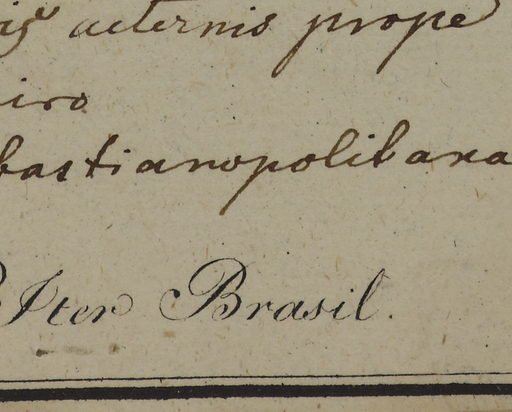 aeternis prope
iro
bastianopolitana
Iter Brasil.